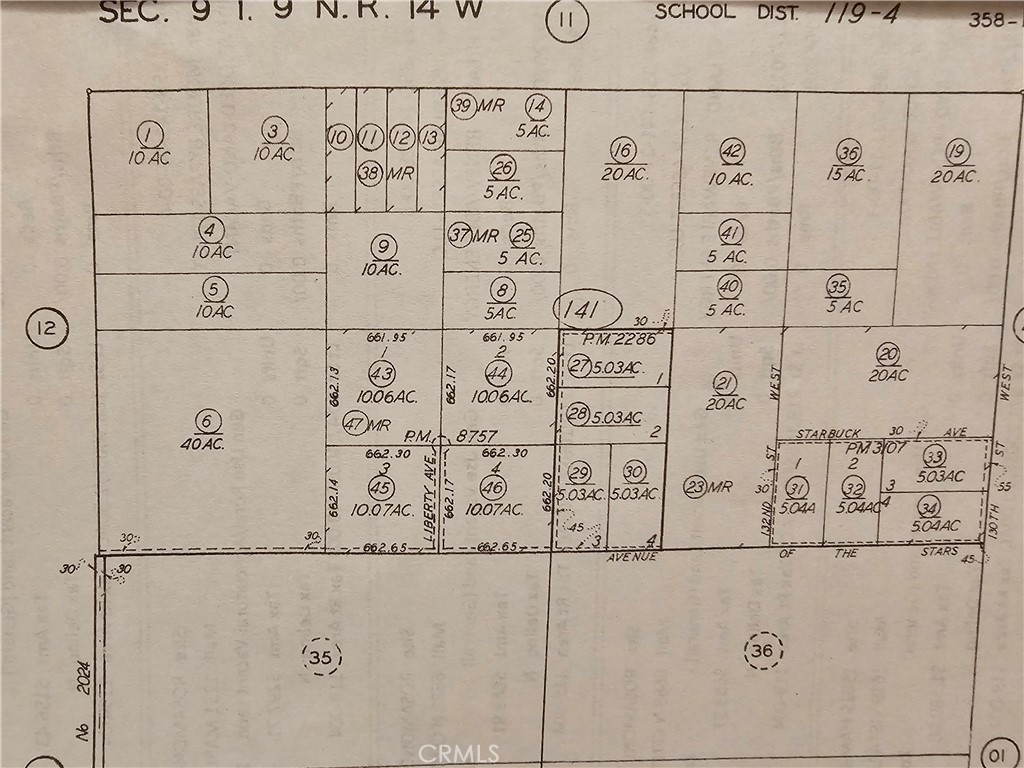 SEC. 9 T. 9 N. R. 14 W
11
SCHOOL DIST. 119-4
358-1
1
10 AC
3
10 AC
10
11
12
13
38 MR
39 MR
14
5 AC.
26
5 AC.
16
20 AC.
42
10 AC.
36
15 AC.
19
20 AC.
4
10 AC
9
10 AC.
37 MR
25
5 AC.
41
5 AC.
5
10 AC
8
5 AC.
40
5 AC.
35
5 AC
12
141
30
6
40 AC.
661.95
1
43
10.06 AC.
662.13
47 MR
661.95
2
44
10.06 AC.
662.17
662.20
P.M. 8757
P.M. 2286
27 5.03 AC.
1
28 5.03 AC.
2
21
20 AC
WEST
20
20 AC
WEST
662.30
3
45
10.07 AC.
662.14
662.65
LIBERTY AVE.
662.30
4
46
10.07 AC.
662.17
662.20
662.65
29
5.03 AC.
45
3
30
5.03 AC.
4
23 MR
132ND ST
30
STARBUCK AVE
30
PM 3107
1
31
5.04 A
2
32
5.04 AC
33
5.03 AC
3
4
34
5.04 AC
130TH ST
55
45
30
30
30
30
AVENUE OF THE STARS
35
36
No 2024
01
CRMLS